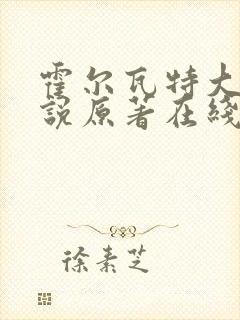 霍尔瓦特大
说原著在线
徐素芝